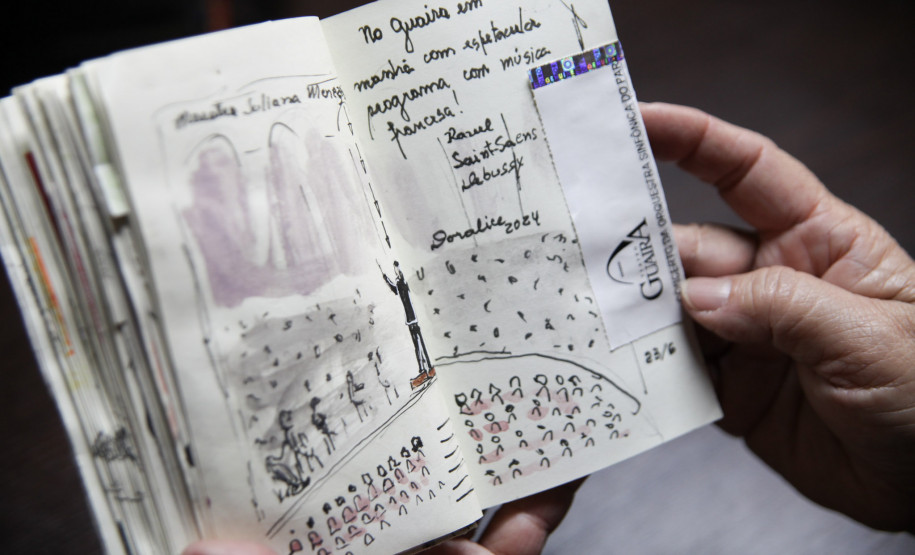 Maestra Juliana
No Guaira em
manhã com espetacular
programa com música
francesa!
Ravel
Saint-Saëns
Debussy
Doralice 2024
GUAÍRA
ORQUESTRA SINFÔNICA DO PAR
23/6